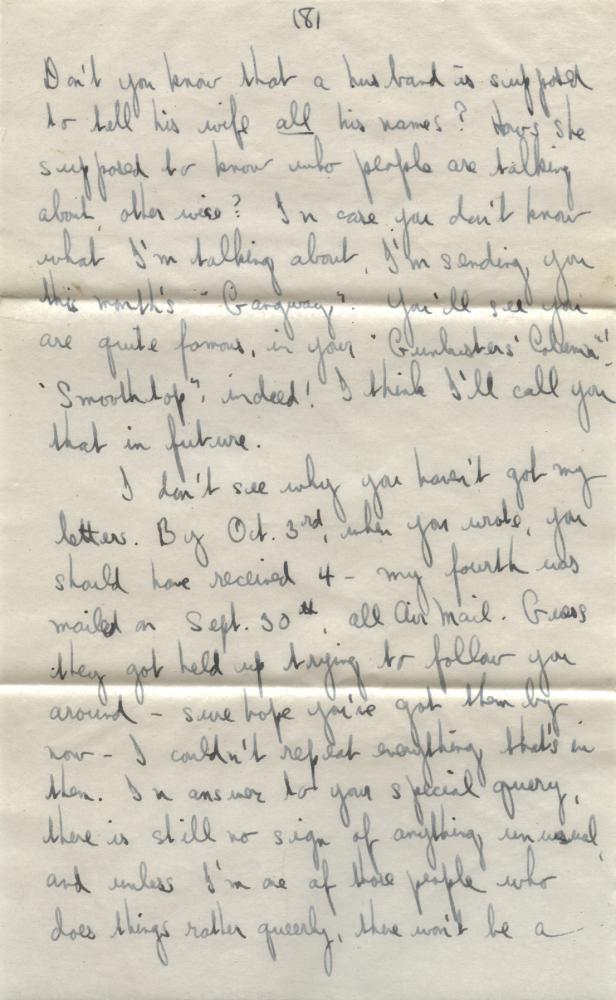 (8)
Don't you know that a husband is supposed
to tell his wife all his names? How's she
supposed to know who people are talking
about, other wise? In case you don't know
what I'm talking about, I'm sending you
this month's "Gangway". You'll see you
are quite famous, in your "Gunbusters'
"Smooth top", indeed! I think I'll call you
that in future.
I don't see why you haven't got my
letters. By Oct. 3rd, when you wrote, you
should have received 4 - my fourth was
mailed on Sept. 30th, all Air Mail. Guess
they got held up trying to follow you
around - sure hope you've got them by
now - I couldn't repeat everything that's in
them. In answer to your special query,
there is still no sign of anything unusual,
and unless I'm one of those people who
does things rather queerly, there won't be a